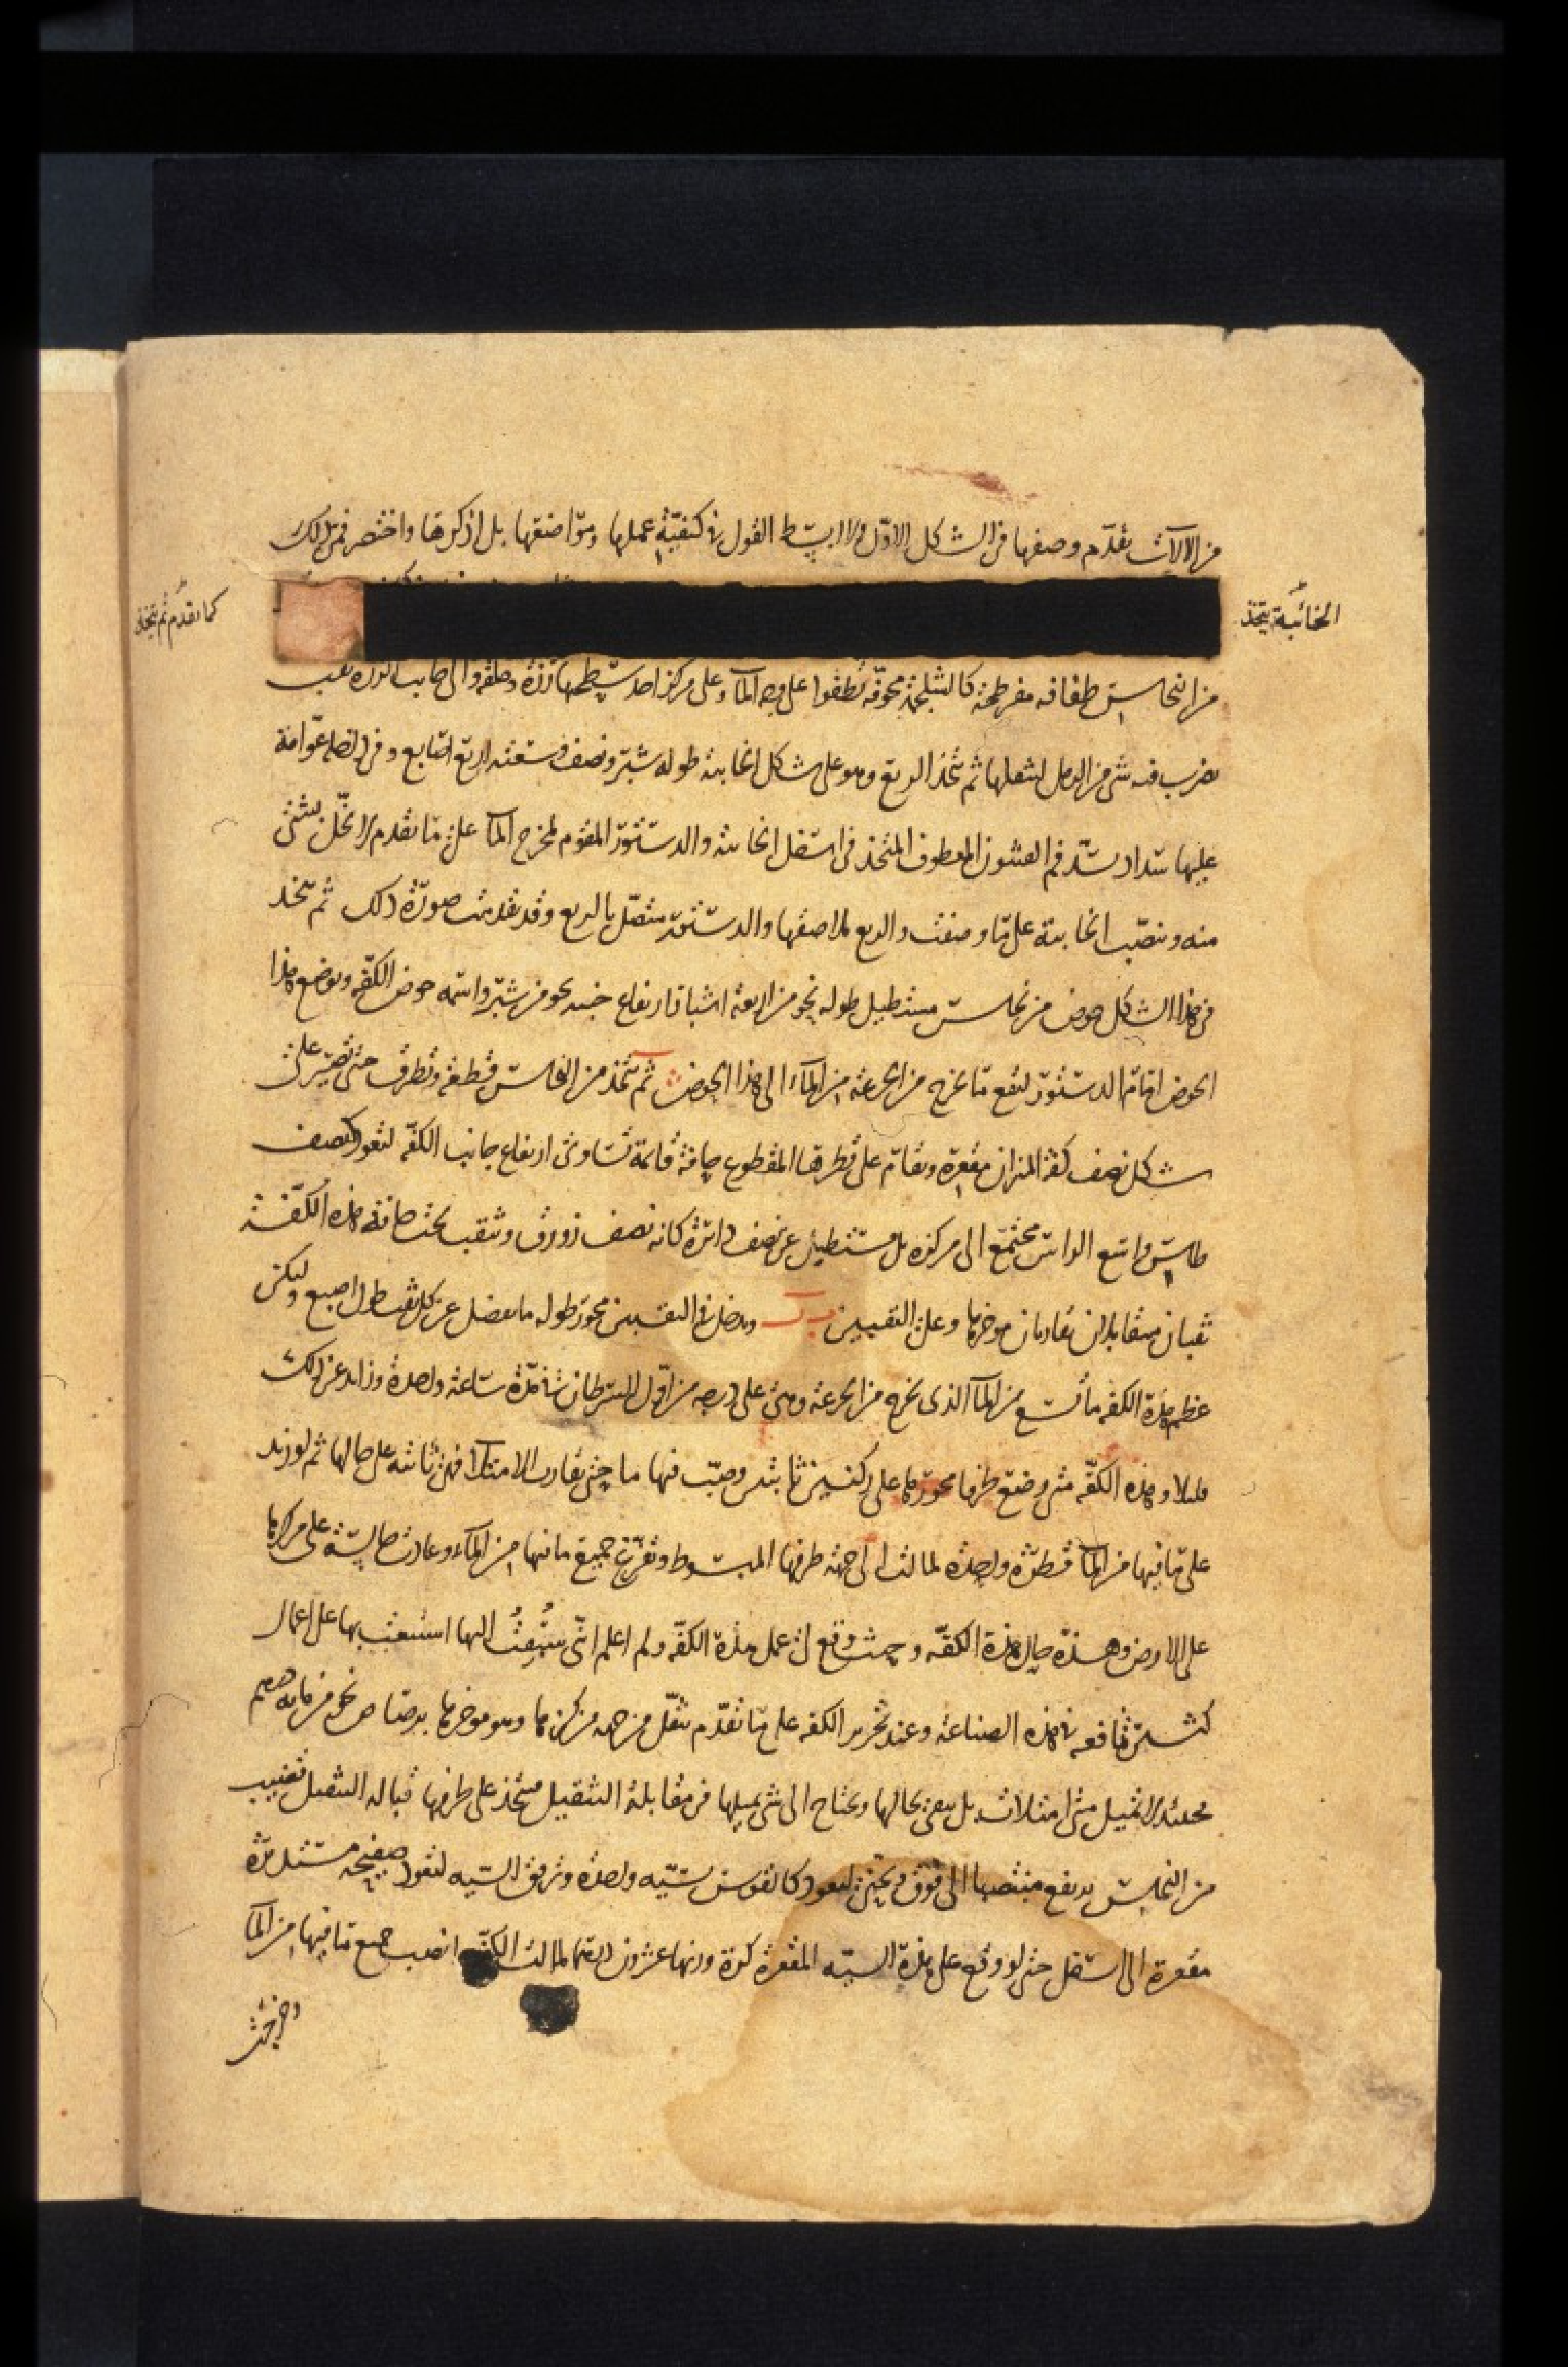 من الآلات تقدم وصفها في الشكل الاول ولا ابسط القول في كيفية عملها ومواضعها بل اذكرها واختصر فمن ذلك
الخابية يتخذ
كما تقدم ثم يتخذ
من النحاس طفافه مفرطحة كالشلجمة مجوفه تطفوا على وجه الماء وعلى مركز احد سطحيها رزة وحلقه والى جانب الرزه ثقب
يضرب فيه شي من الرمل ليثقلها ثم تتخذ الربع وهو على شكل الخابية طوله شبر ونصف وسعته اربع اصابع وفي اسفله عوامة
عليها سداد يسد فم البثيون المعطوف المتخذ في اسفل الخابية والدستور المقوم لمخرج الماء على ما تقدم لا نخل بشئ
منه وينصب الخابية على ما وصفت والربع ملاصقها والدستور متصل بالربع وقد تقدمت صورة ذلك ثم تتخذ
في هذا الشكل حوض من نحاس مستطيل طوله نحو من اربعة اشبار ارتفاع جنبه نحو من شبر واسمه حوض الكفة ويوضع هذا
الحوض امام الدستور ليقع ما يخرج من الجزعة من الماء الى هذا الحوض ثم تتخذ من النحاس قطعة وتطرق حتى تصير على
شكل نصف كفة الميزان مقعرة ويقام على قطرها المقطوع حافة قائمة تساوي ارتفاع جانب الكفة لتعود كنصف
طاس واسع الراس مجتمع الى مركزه بل مستطيل عن نصف دائرة كانه نصف زورق وتثقب تحت حافة هذه الكفة
ثقبان متقابلان يقاربان موخرها وعلى الثقبين ب ب ويدخل في الثقبين محور طوله ما يفضل عن كل ثقب طول اصبع وليكن
عظم هذه الكفة ما تسع من الماء الذي يخرج من الجزعة وهي على درجه من اول السرطان شاملة ساعة واحدة وزايد عن ذلك
قليلا وهذه الكفة متى وضع طرفا محورها على ركنين ثابتين وصب فيها ما حتى يقارب الامتلا فهي ثابته على حالها ثم لو زيد
على ما فيها من الماء قطرة واحدة لمالت الى جهة طرفها المبسوط وتفرغ جميع ما فيها من الماء وعادت جالسة على مركزها
على الارض وهذه حال هذه الكفة وحيث وقع لي عمل هذه الكفة ولم اعلم اني سبقت اليها استعنت بها على اعمال
كثيرة نافعه في هذه الصناعة وعند تحرير الكفة على ما تقدم تثقل من جهه مركزها وهو موخرها برصاص نحو من مايه درهم
فحينئذ لا تميل متى امتلات بل تبقى بحالها وتحتاج الى شي يميلها في مقابلة التثقيل متخذ على طرفها قباله الثقيل قضيب
من النحاس يرتفع منتصبا الى فوق ويحنى ليعود كالقوس سيه واحدة وترقق السيه لتعود صفيحه مستديرة
مقعرة الى اسفل حتى لو وقع على هذه السيه المقعرة كرة وزنها عشرون درهما لمالت الكفة وانصب جميع ما فيها من الماء